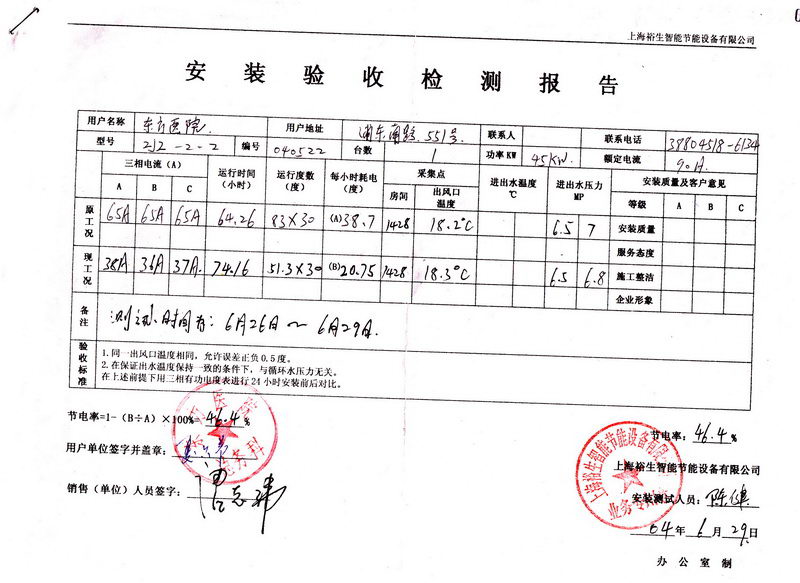 上海裕生智能节能设备有限公司
安装验收检测报告
用户名称 东方医院 用户地址 浦东南路551号 联系人 联系电话 38804518-6134
型号 212-2-2 编号 040522 台数 1 功率KW 45KW. 额定电流 90A.
三相电流(A) 运行时间(小时) 运行度数(度) 每小时耗电(度) 采集点 进出水温度℃ 进出水压力MP 安装质量及客户意见
A B C 房间 出风口温度 等级 A B C
原工况 65A 65A 65A 64.26 83×30 (A)38.7 1428 18.2℃ 6.5 7 安装质量
服务态度
现工况 38A 36A 37A. 74.16 51.3×30 (B)20.75 1428 18.3℃ 6.5 6.8 施工整洁
企业形象
备注 测试时间为: 6月26日～6月29日.
验收标准 1.同一出风口温度相同，允许误差正负0.5度。
2.在保证出水温度保持一致的条件下，与循环水压力无关。
在上述前提下用三相有功电度表进行24小时安装前后对比。
节电率=1-(B÷A)×100%= 46.4%
节电率: 46.4%
用户单位签字并盖章:
上海裕生智能节能设备有限公司
销售（单位）人员签字:
安装测试人员: 陈
04年6月29日
办公室制
东方医院
总务科
上海裕生智能节能设备有限公司
业务专用章